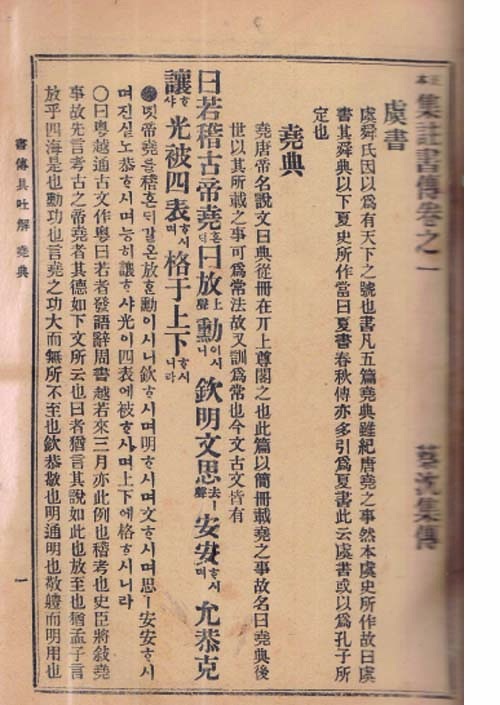 正本 集註書傳卷之一 蔡沈集傳
虞書
虞舜氏因以爲有天下之號也書凡五篇堯典雖紀唐堯之事然本虞史所作故曰虞
書其舜典以下夏史所作當曰夏書春秋傳亦多引爲夏書此云虞書或以爲孔子所
定也
堯典
堯唐帝名說文曰典從冊在丌上尊閣之也此篇以簡冊載堯之事故名曰堯典後
世以其所載之事可爲常法故又訓爲常也今文古文皆有
曰若稽古帝堯혼ᄃᆡ曰放上聲勳이시니欽明文思去聲ㅣ安安ᄒᆞ시며允恭克
讓ᄒᆞ샤光被四表ᄒᆞ시며格于上下ᄒᆞ시니라
녯帝堯를稽혼ᄃᆡ갈온放ᄒᆞᆫ勳이시니欽ᄒᆞ시며明ᄒᆞ시며文ᄒᆞ시며思ㅣ安安ᄒᆞ시
며진실노恭ᄒᆞ시며능히讓ᄒᆞ샤光이四表에被ᄒᆞ시며上下에格ᄒᆞ시니라
〇曰粤越通古文作粤曰若者發語辭周書越若來三月亦此例也稽考也史臣將敍堯
事故先言考古之帝堯者其德如下文所云也曰者猶言其說如此也放至也猶孟子言
放乎四海是也勳功也言堯之功大而無所不至也欽恭敬也明通明也敬體而明用也
書傳具吐解 堯典 一